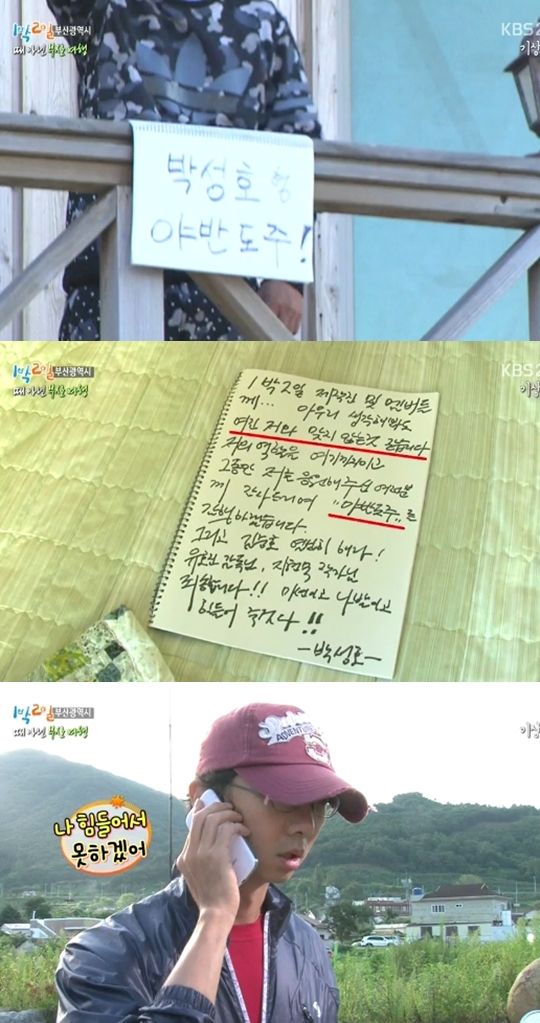 1박2일 부산광역시
때 아닌 부산 여행
KBS2
기상
박성호 형
야반도주!
1박2일 부산광역시
때 아닌 부산 여행
KBS2
기상
1박2일 제작진 및 멤버들
께... 아무리 생각해봐도
여긴 저와 맞지 않는것 같습니다
저의 역할은 여기까지이고
그동안 저를 응원해주신 여러분
께 감사드리며 "야반도주"를
감행하겠습니다.
그리고 김승호 열심히 해라!
유호진 감독님, 지현숙 작가님
죄송합니다!! 미션이고 나발이고
힘들어 죽겠다!!
-박성호-
1박2일 부산광역시
때 아닌 부산 여행
기상
ADVENTURE
나 힘들어서
못하겠어